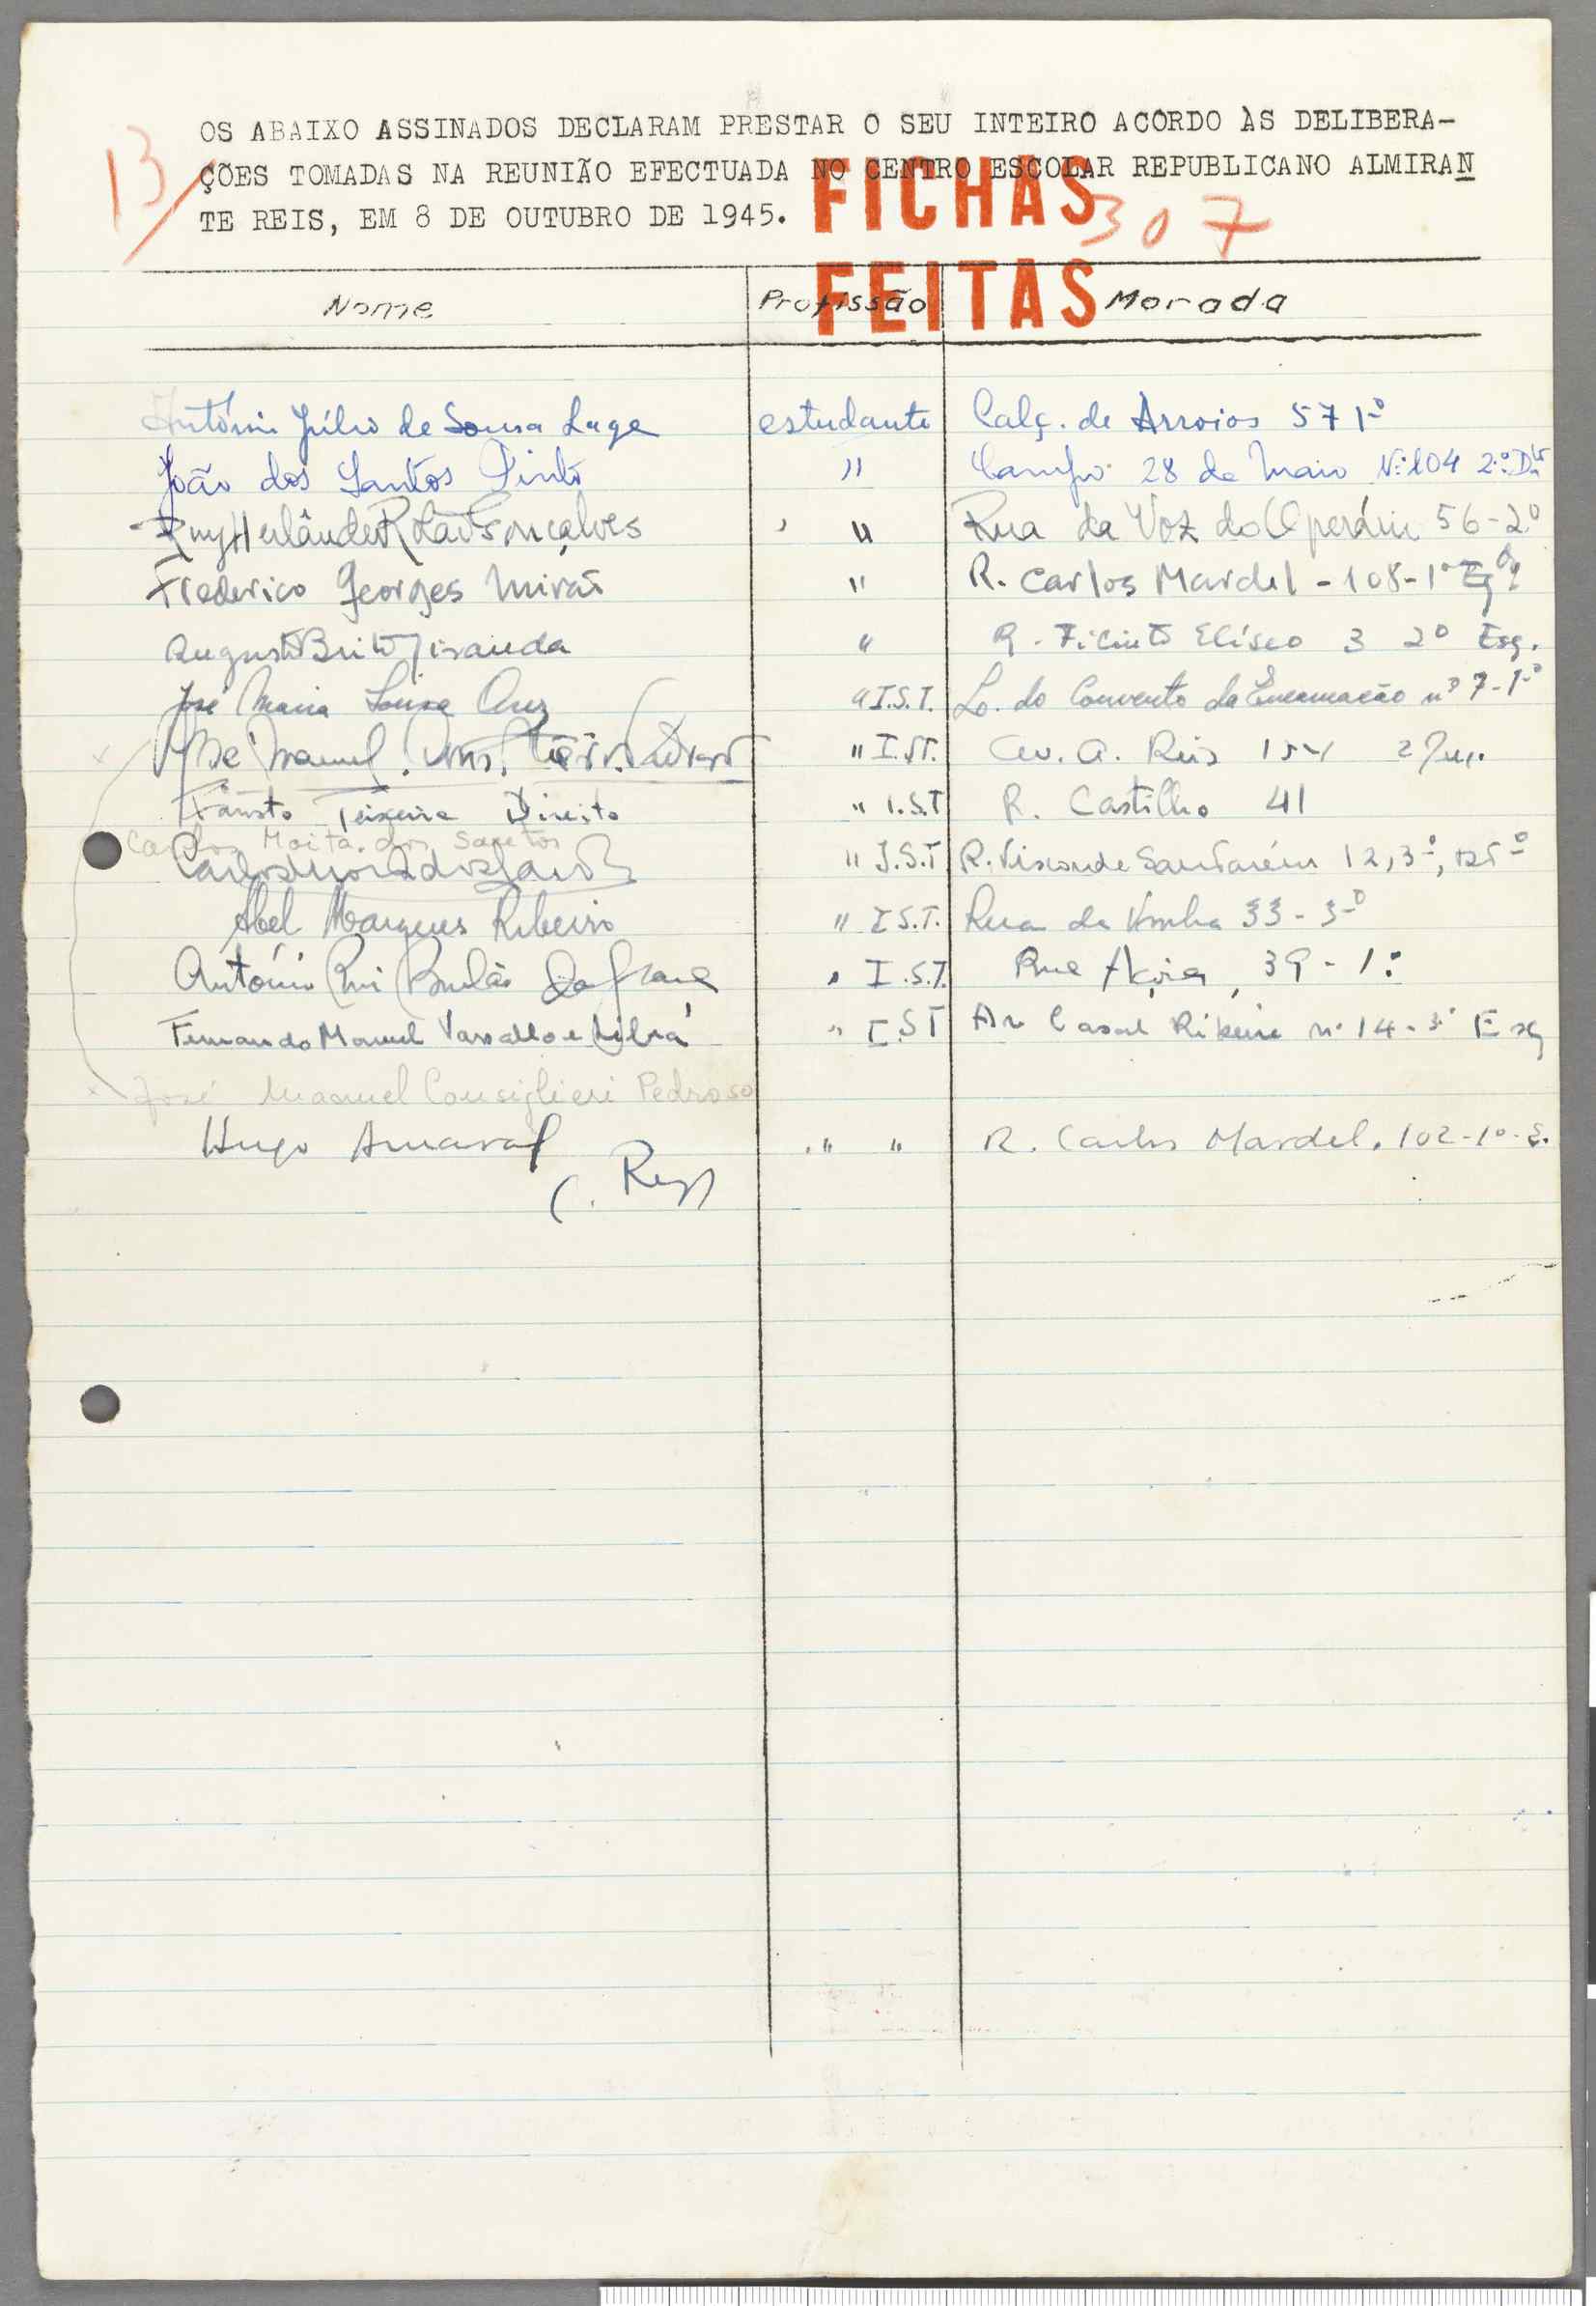 OS ABAIXO ASSINADOS DECLARAM PRESTAR O SEU INTEIRO ACORDO ÀS DELIBERA-
13/ ÇÕES TOMADAS NA REUNIÃO EFECTUADA NO CENTRO ESCOLAR REPUBLICANO ALMIRAN
TE REIS, EM 8 DE OUTUBRO DE 1945.
FICHAS
FEITAS
307
Nome Profissão Morada
António Júlio de Sousa Lage estudante Calç. de Arroios 57 1º
João dos Santos Pinto " Campo 28 de Maio Nº 104 2º Dtº
Ruy Herlânder Gonçalves " Rua da Voz do Operário 56-2º
Frederico Georges " R. Carlos Mardel - 108-1º Esqº
Augusto Brito " R. Filinto Elíseo 3 2º Esq.
José Maria Sousa Cruz " I.S.T. Lo. do Convento da Encarnação nº 7-1º
José Manuel " I.S.T. Av. A. Reis
Fausto Teixeira Direito " I.S.T R. Castilho 41
Carlos Moita dos Santos
" I.S.T R. Visconde Santarém 12, 3º,
Abel Marques Ribeiro " I.S.T. Rua da 33-3º
António Rui " I.S.T. Rua 39-1º
Fernando Manuel " I.S.T Av Casal Ribeiro nº 14-3º Esq
José Manuel Consiglieri Pedroso
Hugo Amaral " " R. Carlos Mardel, 102-1º-E.